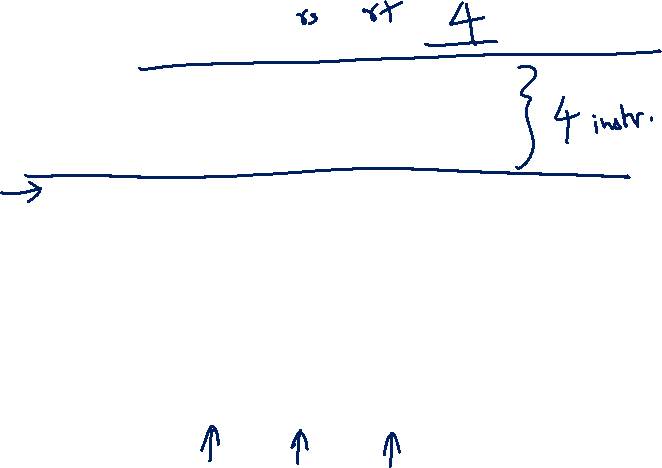 rs rt 4
4 instr.